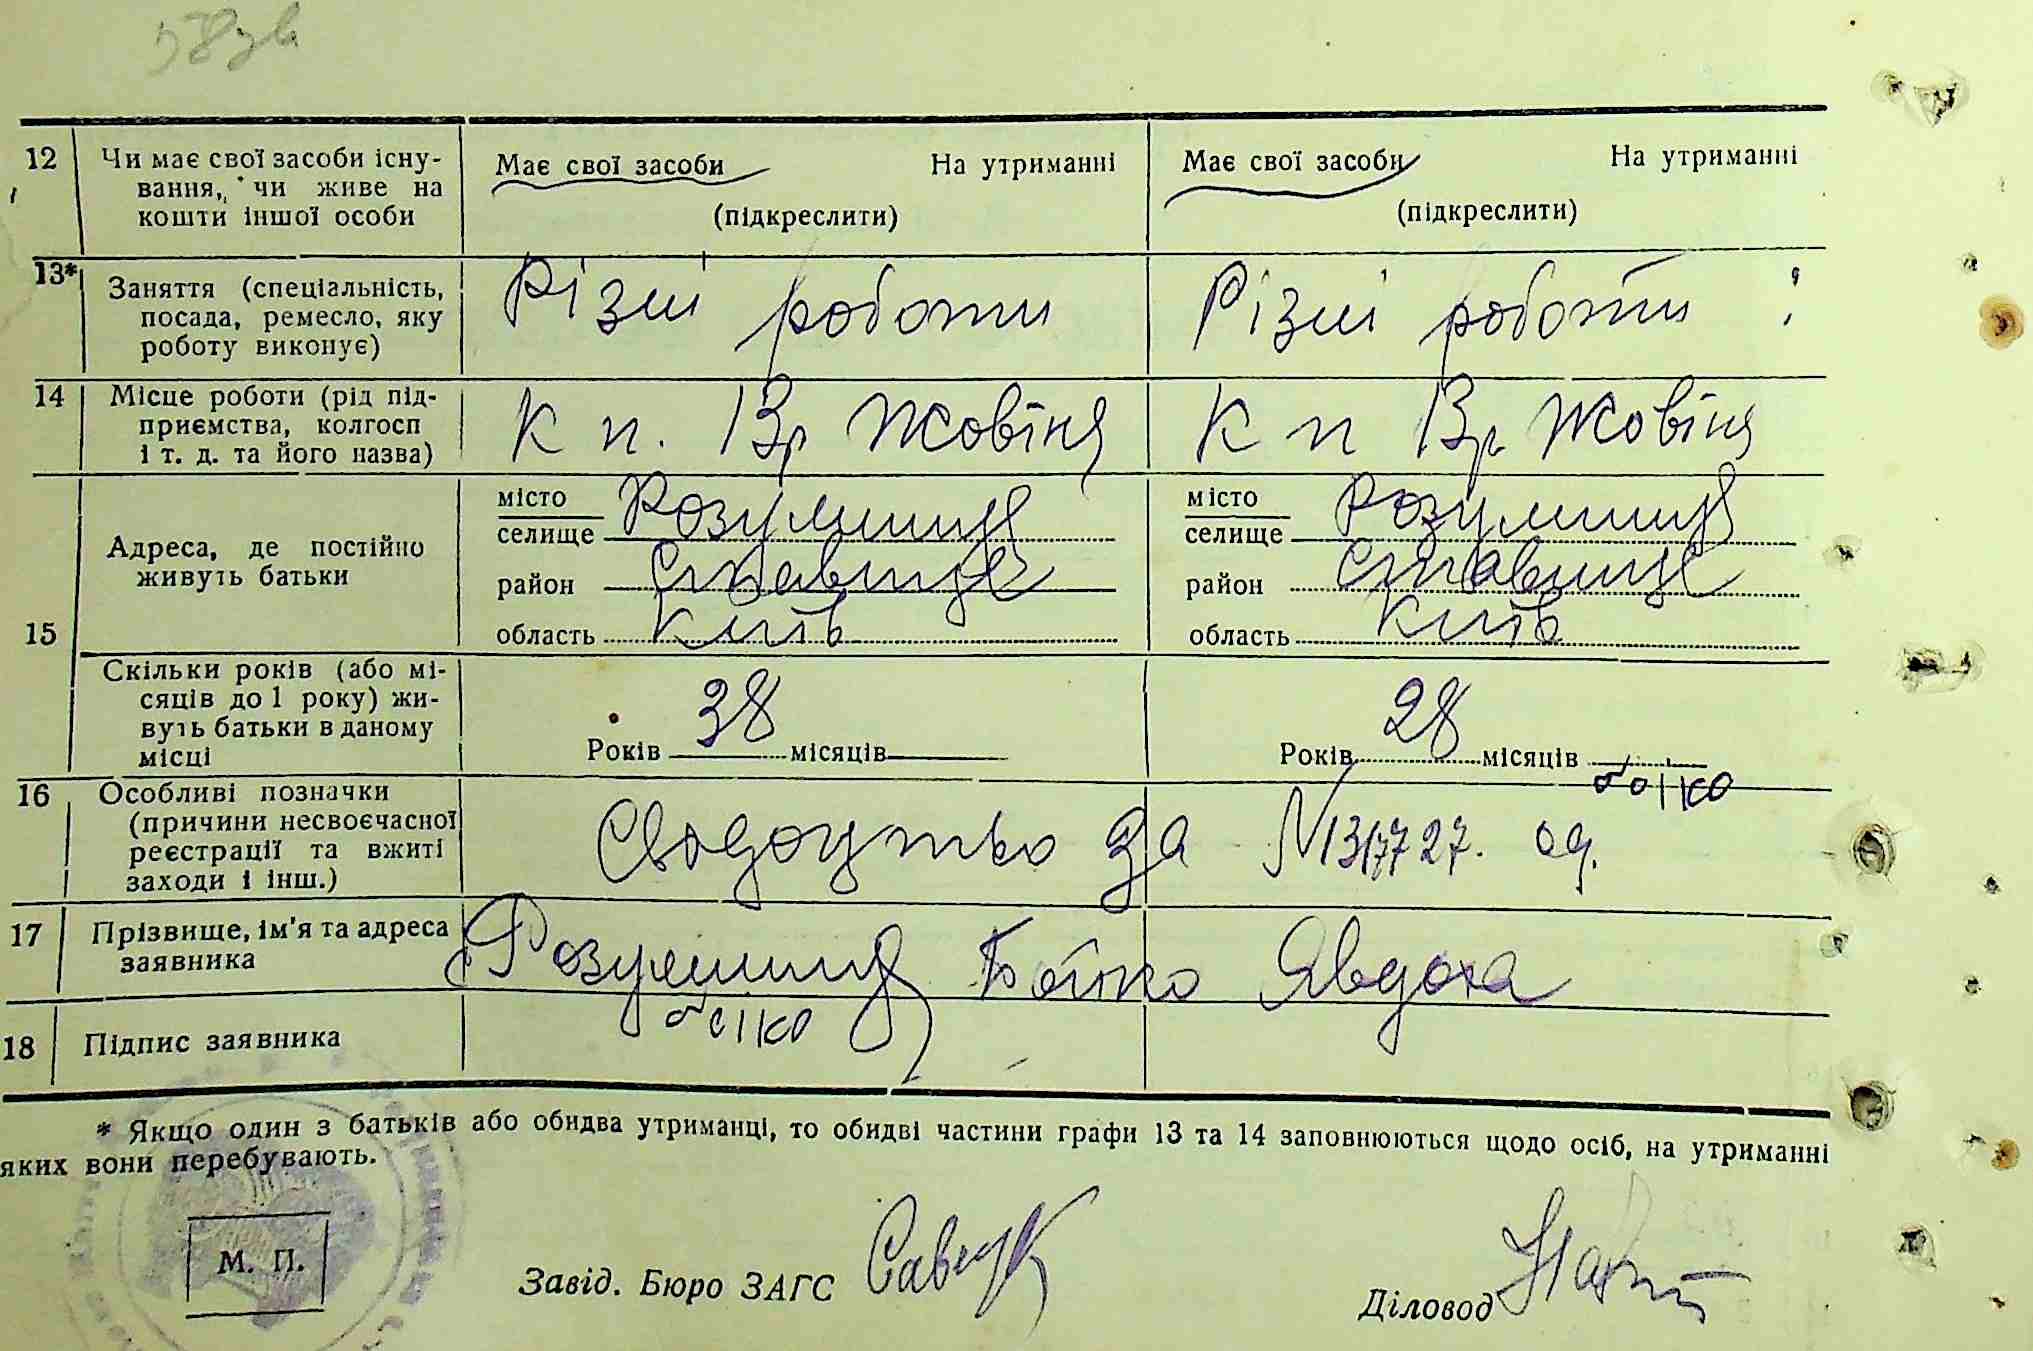 58зв
12 Чи має свої засоби існу-
вання, чи живе на
кошти іншої особи
Має свої засоби На утриманні
(підкреслити)
Має свої засоби На утриманні
(підкреслити)
13* Заняття (спеціальність,
посада, ремесло, яку
роботу виконує)
Різні роботи
Різні роботи
14 Місце роботи (рід під-
приємства, колгосп
і т. д. та його назва)
К п. Жовтня
К п Жовтня
15 Адреса, де постійно
живуть батьки
місто
селище Розумниця
район Ставище
область Київ
місто
селище Розумниця
район Ставище
область Київ
Скільки років (або мі-
сяців до 1 року) жи-
вуть батьки в даному
місці
Років 38 місяців
Років 28 місяців
16 Особливі позначки
(причини несвоєчасної
реєстрації та вжиті
заходи і інш.)
Сводоцтво за N
од.
боіко
17 Прізвище, ім'я та адреса
заявника
Розумниця Бойко Явдоха
18 Підпис заявника
боіко
* Якщо один з батьків або обидва утриманці, то обидві частини графи 13 та 14 заповнюються щодо осіб, на утриманні
яких вони перебувають.
М. П.
Завід. Бюро ЗАГС Савчук
Діловод